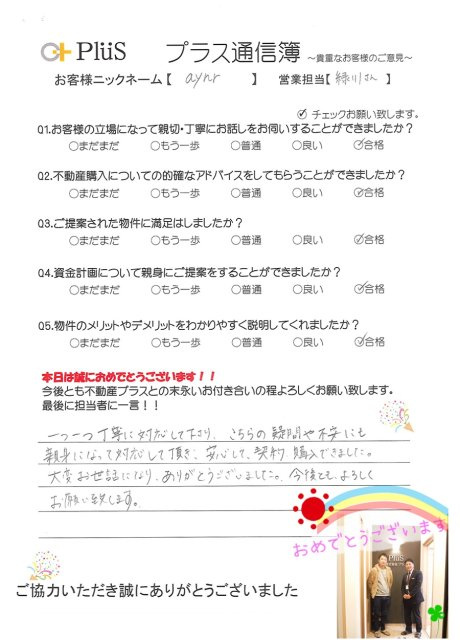 PlüS プラス通信簿 ～貴重なお客様のご意見～
お客様ニックネーム【 aynr 】 営業担当【 緑川さん 】
チェックお願い致します。
Q1.お客様の立場になって親切・丁寧にお話しをお伺いすることができましたか？
○まだまだ ○もう一歩 ○普通 ○良い ○合格
Q2.不動産購入についての的確なアドバイスをしてもらうことができましたか？
○まだまだ ○もう一歩 ○普通 ○良い ○合格
Q3.ご提案された物件に満足はしましたか？
○まだまだ ○もう一歩 ○普通 ○良い ○合格
Q4.資金計画について親身にご提案をすることができましたか？
○まだまだ ○もう一歩 ○普通 ○良い ○合格
Q5.物件のメリットやデメリットをわかりやすく説明してくれましたか？
○まだまだ ○もう一歩 ○普通 ○良い ○合格
本日は誠におめでとうございます！！
今後とも不動産プラスとの末永いお付き合いの程よろしくお願い致します。
最後に担当者に一言！！
一つ一つ丁寧に対応して下さり、こちらの疑問や不安にも
親身になって対応して頂き、安心して、契約、購入できました。
大変お世話になり、ありがとうございました。今後とも、よろしく
お願い致します。
おめでとうございます
PlüS
ご協力いただき誠にありがとうございました